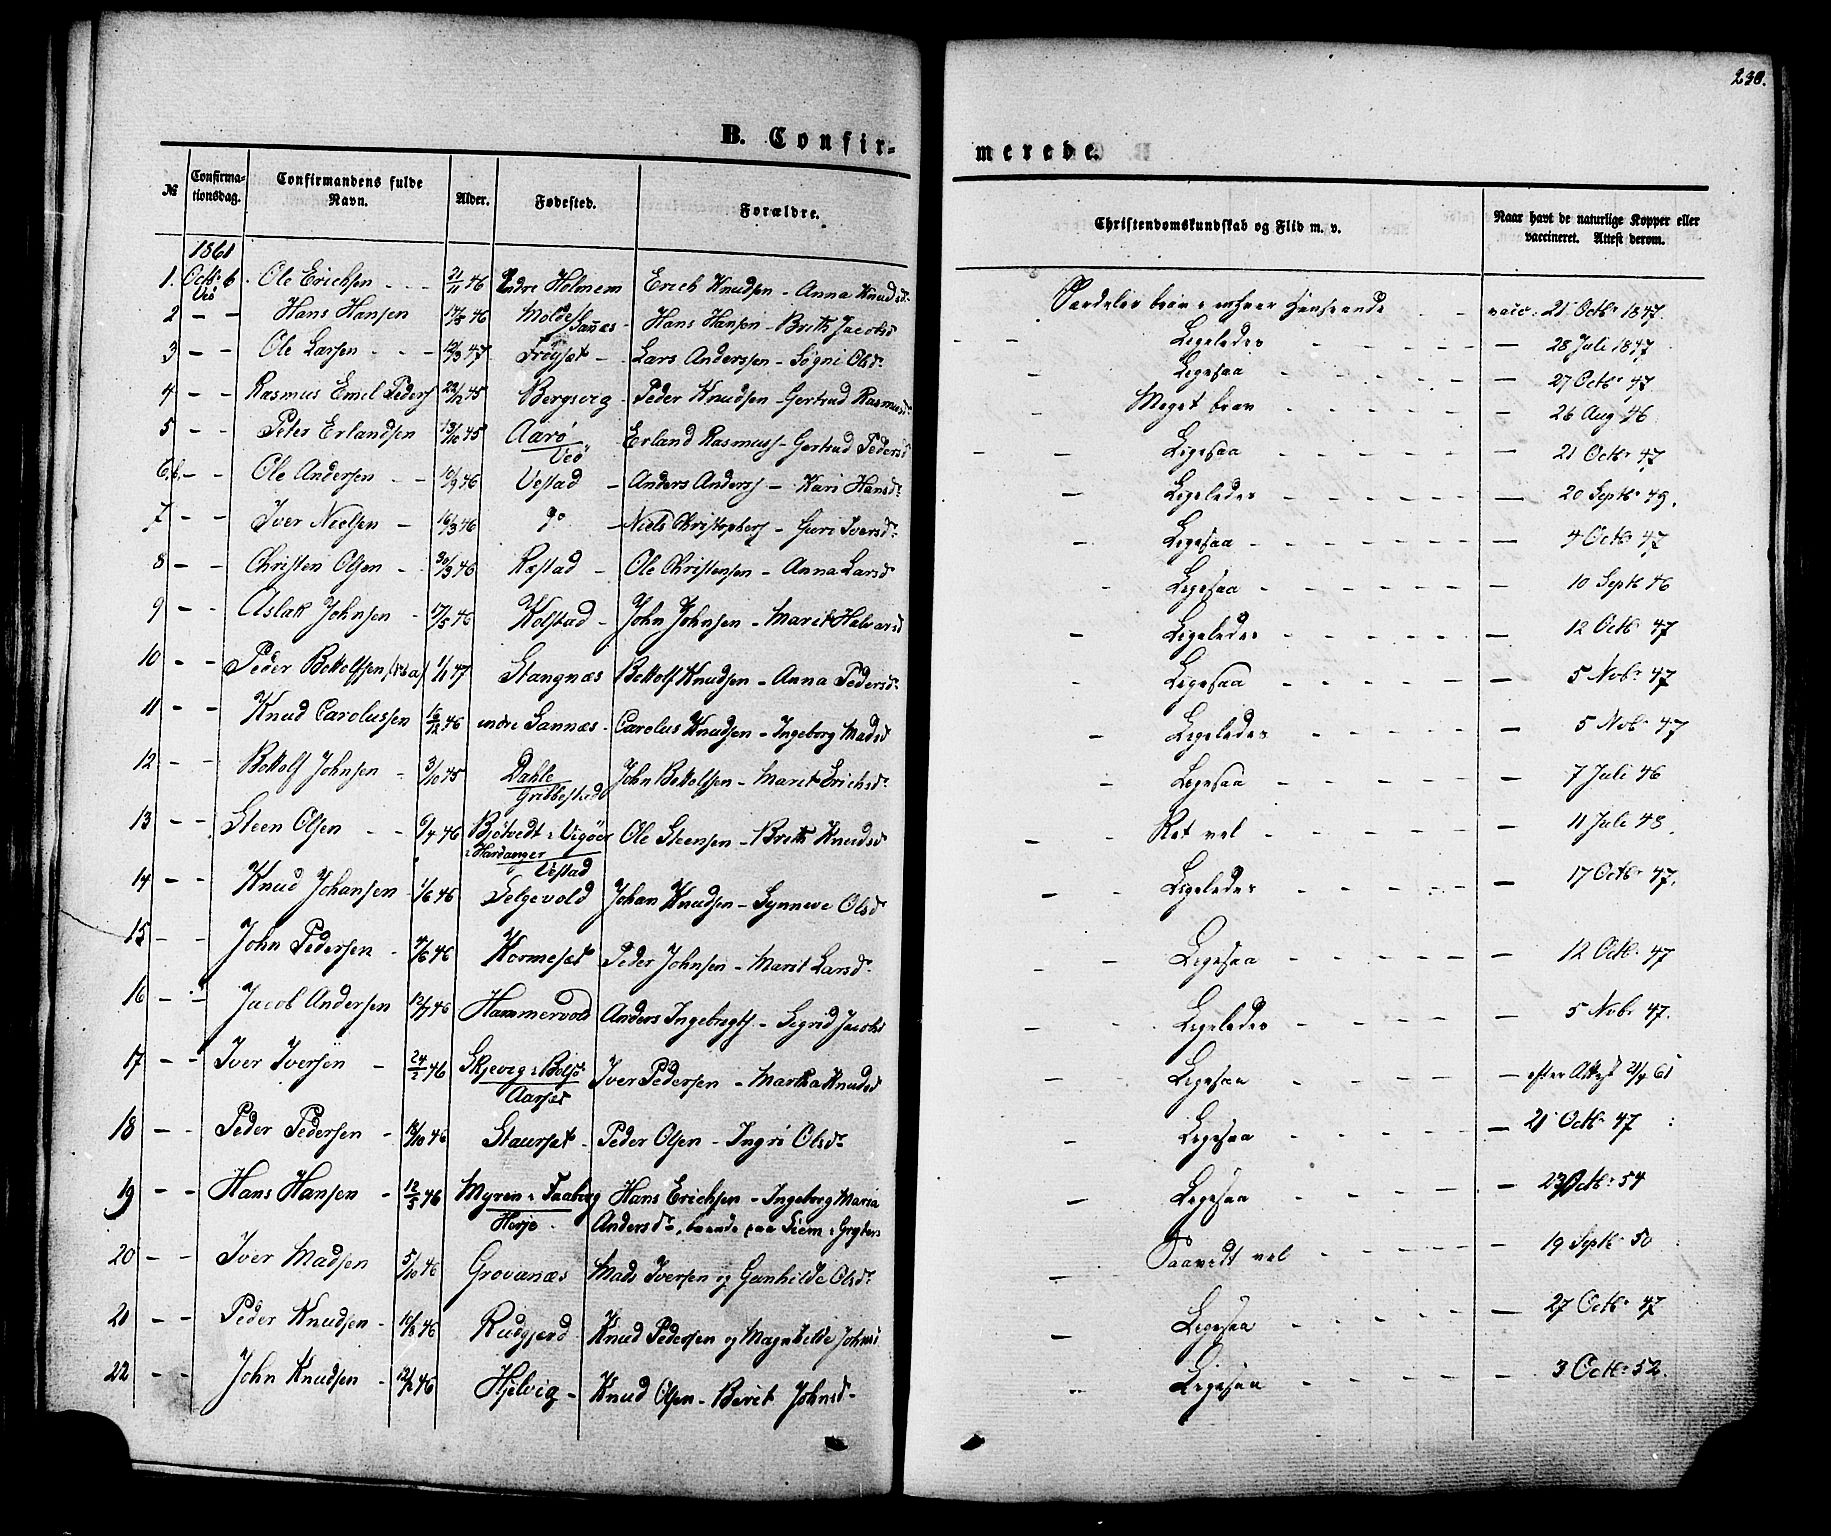 230.
B. Confir-
merede.
№ Confirma-tionsdag. Confirmandens fulde Navn. Alder. Fødested. Forældre. Christendomskundskab og Flid m. v. Naar havt de naturlige Kopper eller vaccineret. Attest derom.
1861
1. Octbr 6 Ole Erichsen 21/11 46 Indre Holmem Erich Knudsen - Anna Knudsd. Særdeles brav i enhver Henseende vacc. 21 Octbr 1847.
Veö
2 - - Hans Hansen 46 Molde/Sannæs - Hans Hansen - Brith Jacobsd Ligeledes - 28 Juli 1847
3 - - Ole Larsen 47 Fröyset - Lars Anderssen - Sögni Olsd. Ligesaa - 27 Octbr 47
4 - - Rasmus Emil Peders 45 Bergsvig - Peder Knudsen - Gertrud Rasmusd. Meget brav - 26 Aug 46
5 - - Peter Erlandsen 13/10 45 Aarö Erland Rasmuss - Gertrud Pedersd Ligesaa - 21 Octbr 47
Veö
6. - - Ole Andersen 10/9 46 Vestad - Anders Anderss - Kari Hansd. Ligeledes - 20 Septbr 49.
7 - - Iver Nielsen - 16/3 46 do - Niels Christophers - Guri Iversd. Ligesaa - 4 Octbr 47
8 - - Christen Olsen - 30/3 46 Ræstad - Ole Christensen - Anna Larsd Ligesaa - 10 Septbr 46
9 - - Aslak Johnsen - 17/5 46 Kolstad - John Johnsen - Marit Halvarsd Ligeledes - 12 Octbr 47
10 - - Peder Bottolfsen 1/1 47 Stangnæs Bottolf Knudsen - Anna Pedersd. Ligesaa - 5 Novbr 47
11 - - Knud Carolussen 16/12 46 indre Sannæs - Carolus Knudsen - Ingeborg Madsd Ligeledes - 5 Novbr 47
12 - - Bottolf Johnsen - 3/10 45 Dahle John Bottolfsen - Marit Erichsd. Ligesaa - 7 Juli 46
Gribbestad
13 - - Steen Olsen - - 6/4 46 Bjötvedt i Vigöer Ole Steensen - Brith Knudsd Ret vel - 11 Juli 48.
i Hardanger
Vestad
14 - - Knud Johansen 1/6 46 Selgevold Johan Knudsen - Synneve Olsd Ligeledes - 17 Octbr 47.
15 - - John Pedersen - 46 Kormeset Peder Johnsen - Marit Larsd. Ligesaa - 12 Octbr 47
16 - - Jacob Andersen 12/7 46 Hammervold Anders Ingebrigts - Sigrid Jacobsd Ligeledes - 5 Novbr 47.
17 - - Iver Iversen - 24/2 46 Skjevig i Bolsö Iver Pedersen - Martha Knudsd Ligesaa - efter Attest 21/4 61
Aarset
18 - - Peder Pedersen - 46 Staurset - Peder Olsen - Ingri Olsd. Ligesaa - 21 Octbr 47
19 - - Hans Hansen - 12/5 46 Myren i Faaberg Hans Erichsen - Ingeborg Maria Ligesaa - 23 Octbr 54
Herje - Andersd.
20 - - Iver Madsen 5/10 46 Grovanæs Mads Iversen og Gunhilde Olsd. Saavidt vel - 19 Septbr 50
21 - - Peder Knudsen - 46 Rudgjerd - Knud Pedersen og Magnhilde Johns Ligesaa - 27 Octbr 47
22 - - John Knudsen - 46 Hjelvig - Knud Olsen - Berit Johnsd - Ligesaa - 3 Octbr 52.